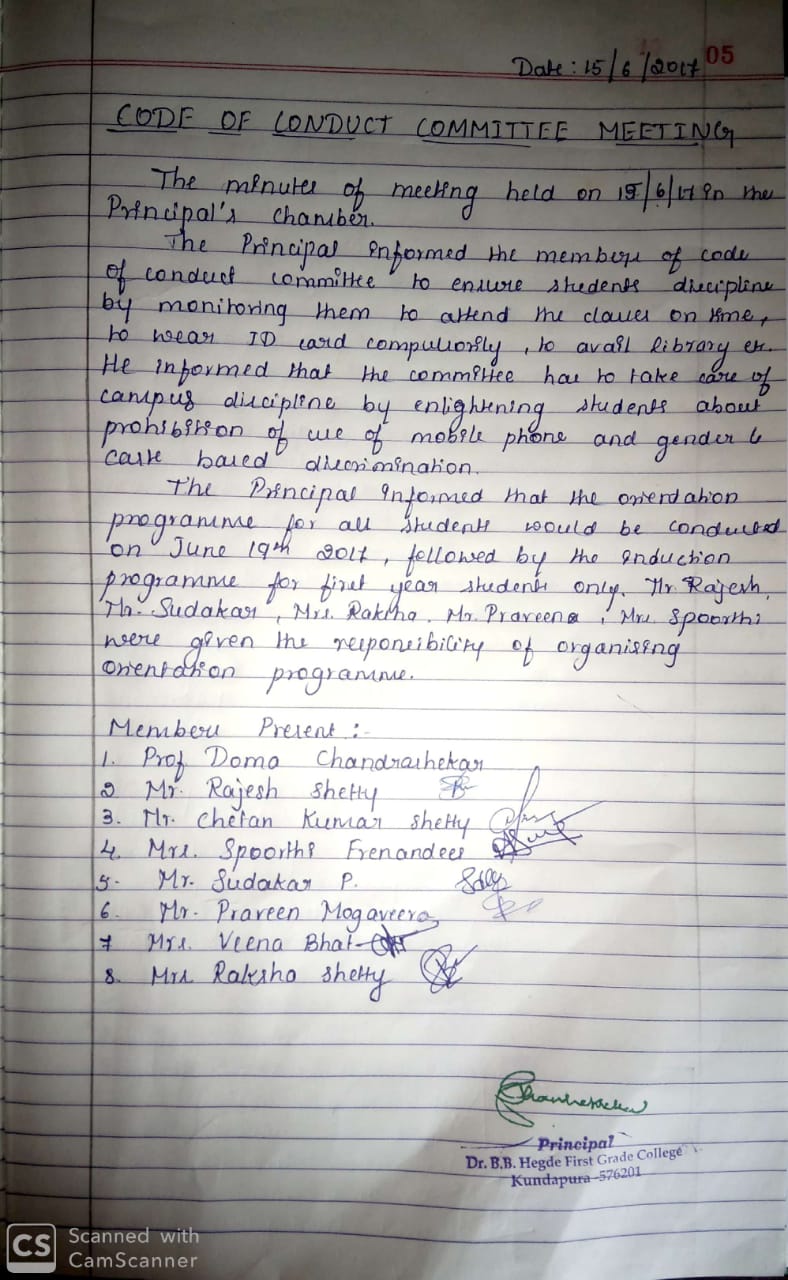 05
Date : 15/6/2017
CODE OF CONDUCT COMMITTEE MEETING
The minutes of meeting held on 15/6/17 in the
Principal's chamber.
The Principal informed the members of code
of conduct committee to ensure students discipline
by monitoring them to attend the classes on time,
to wear ID card compulsorily, to avail library etc.
He informed that the committee has to take care of
campus discipline by enlightening students about
prohibition of use of mobile phone and gender &
caste based discrimination.
The Principal informed that the orientation
programme for all students would be conducted
on June 19th 2017, followed by the induction
programme for first year students only. Mr. Rajesh,
Mr. Sudakar, Mrs. Raksha, Mr. Praveena, Mrs. Spoorthi
were given the responsibility of organising
orientation programme.
Members Present :-
1. Prof Doma Chandrashekar
2 Mr. Rajesh Shetty
3. Mr. Chetan Kumar Shetty
4. Mrs. Spoorthi Frenandees
5. Mr. Sudakar P.
6. Mr. Praveen Mogaveera
7 Mrs. Veena Bhat
8. Mrs Raksha Shetty
Principal
Dr. B.B. Hegde First Grade College
Kundapura-576201
CS Scanned with
CamScanner